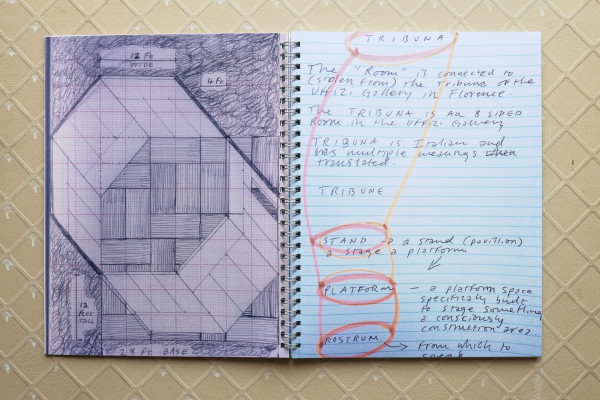 12 Ft
WIDE
4 Ft
12
FEET
TALL
28 Ft BASE
TRIBUNA
The "Room" is connected to
(stolen from) the Tribune of the
Uffizi Gallery in Florence.
The TRIBUNA is AN 8 SIDED
Room in the Uffizi Gallery
TRIBUNA is Italian and
has multiple meanings when
translated.
TRIBUNE
STAND → a stand (pavillion)
a stage a platform
PLATFORM — a platform space
specifically built
to stage something
a consciously
construction area.
ROSTRUM → from which to
speak